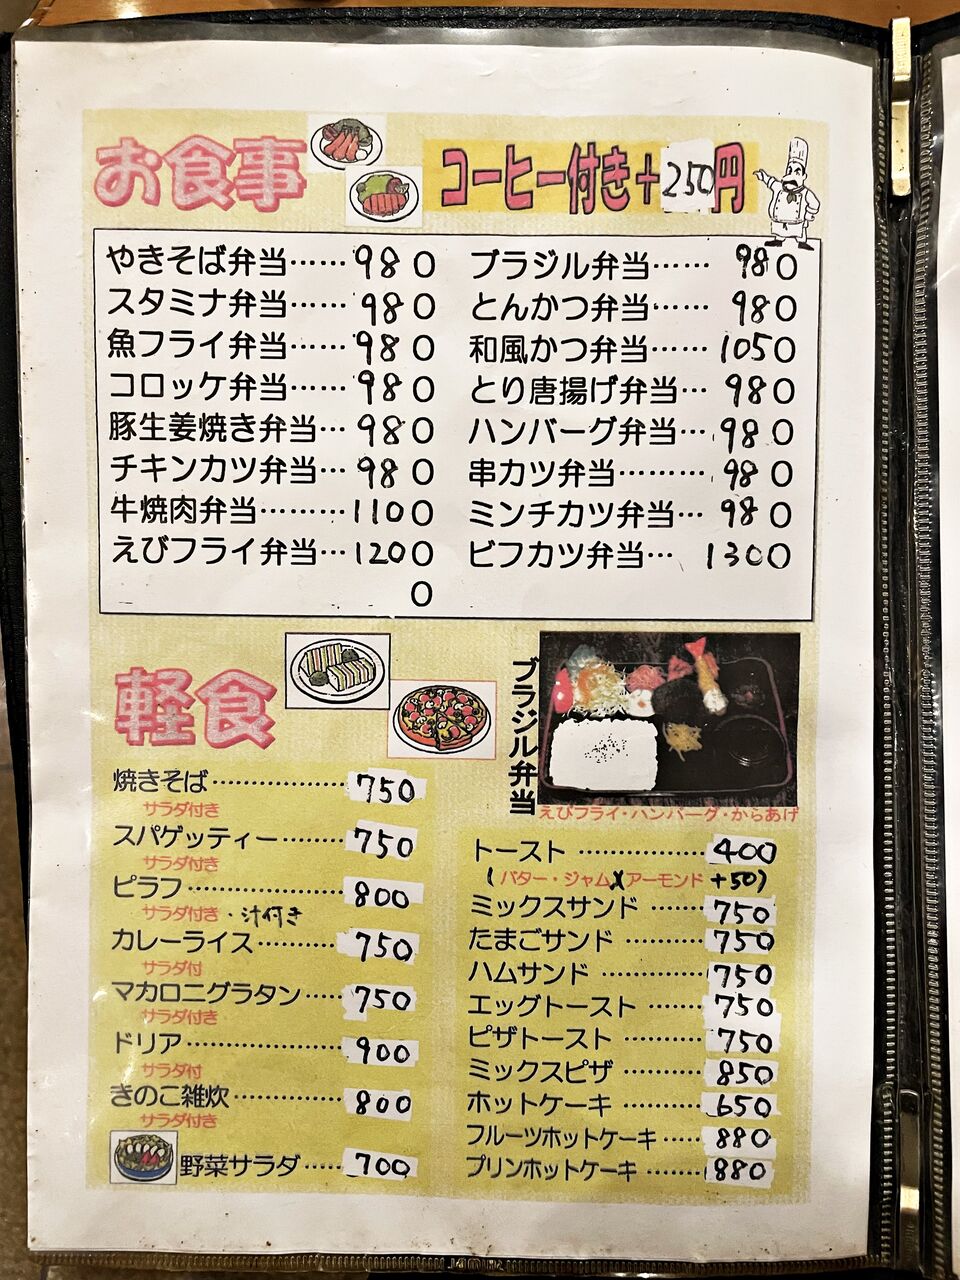 お食事
コーヒー付き+250円
やきそば弁当……980
スタミナ弁当……980
魚フライ弁当……980
コロッケ弁当……980
豚生姜焼き弁当…980
チキンカツ弁当…980
牛焼肉弁当………1100
えびフライ弁当…1200
0
ブラジル弁当……980
とんかつ弁当……980
和風かつ弁当……1050
とり唐揚げ弁当…980
ハンバーグ弁当…980
串カツ弁当………980
ミンチカツ弁当…980
ビフカツ弁当…1300
軽食
焼きそば……………750
サラダ付き
スパゲッティー………750
サラダ付き
ピラフ………………800
サラダ付き・汁付き
カレーライス…………750
サラダ付
マカロニグラタン……750
サラダ付き
ドリア………………900
サラダ付
きのこ雑炊……………800
サラダ付き
野菜サラダ……700
ブラジル弁当
えびフライ・ハンバーグ・からあげ
トースト………………400
(バター・ジャム アーモンド+50)
ミックスサンド………750
たまごサンド…………750
ハムサンド……………750
エッグトースト………750
ピザトースト…………750
ミックスピザ…………850
ホットケーキ…………650
フルーツホットケーキ……880
プリンホットケーキ………880